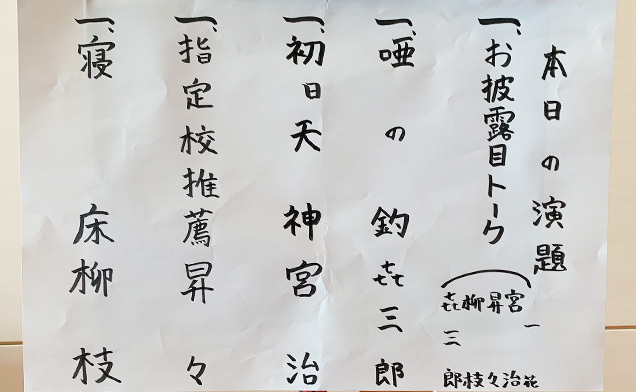 本日の演題
一、お披露目トーク
一花
宮治
昇々
柳枝
㐂三郎
一、唖の釣 㐂三郎
一、初日天神 宮治
一、指定校推薦 昇々
一、寝床 柳枝